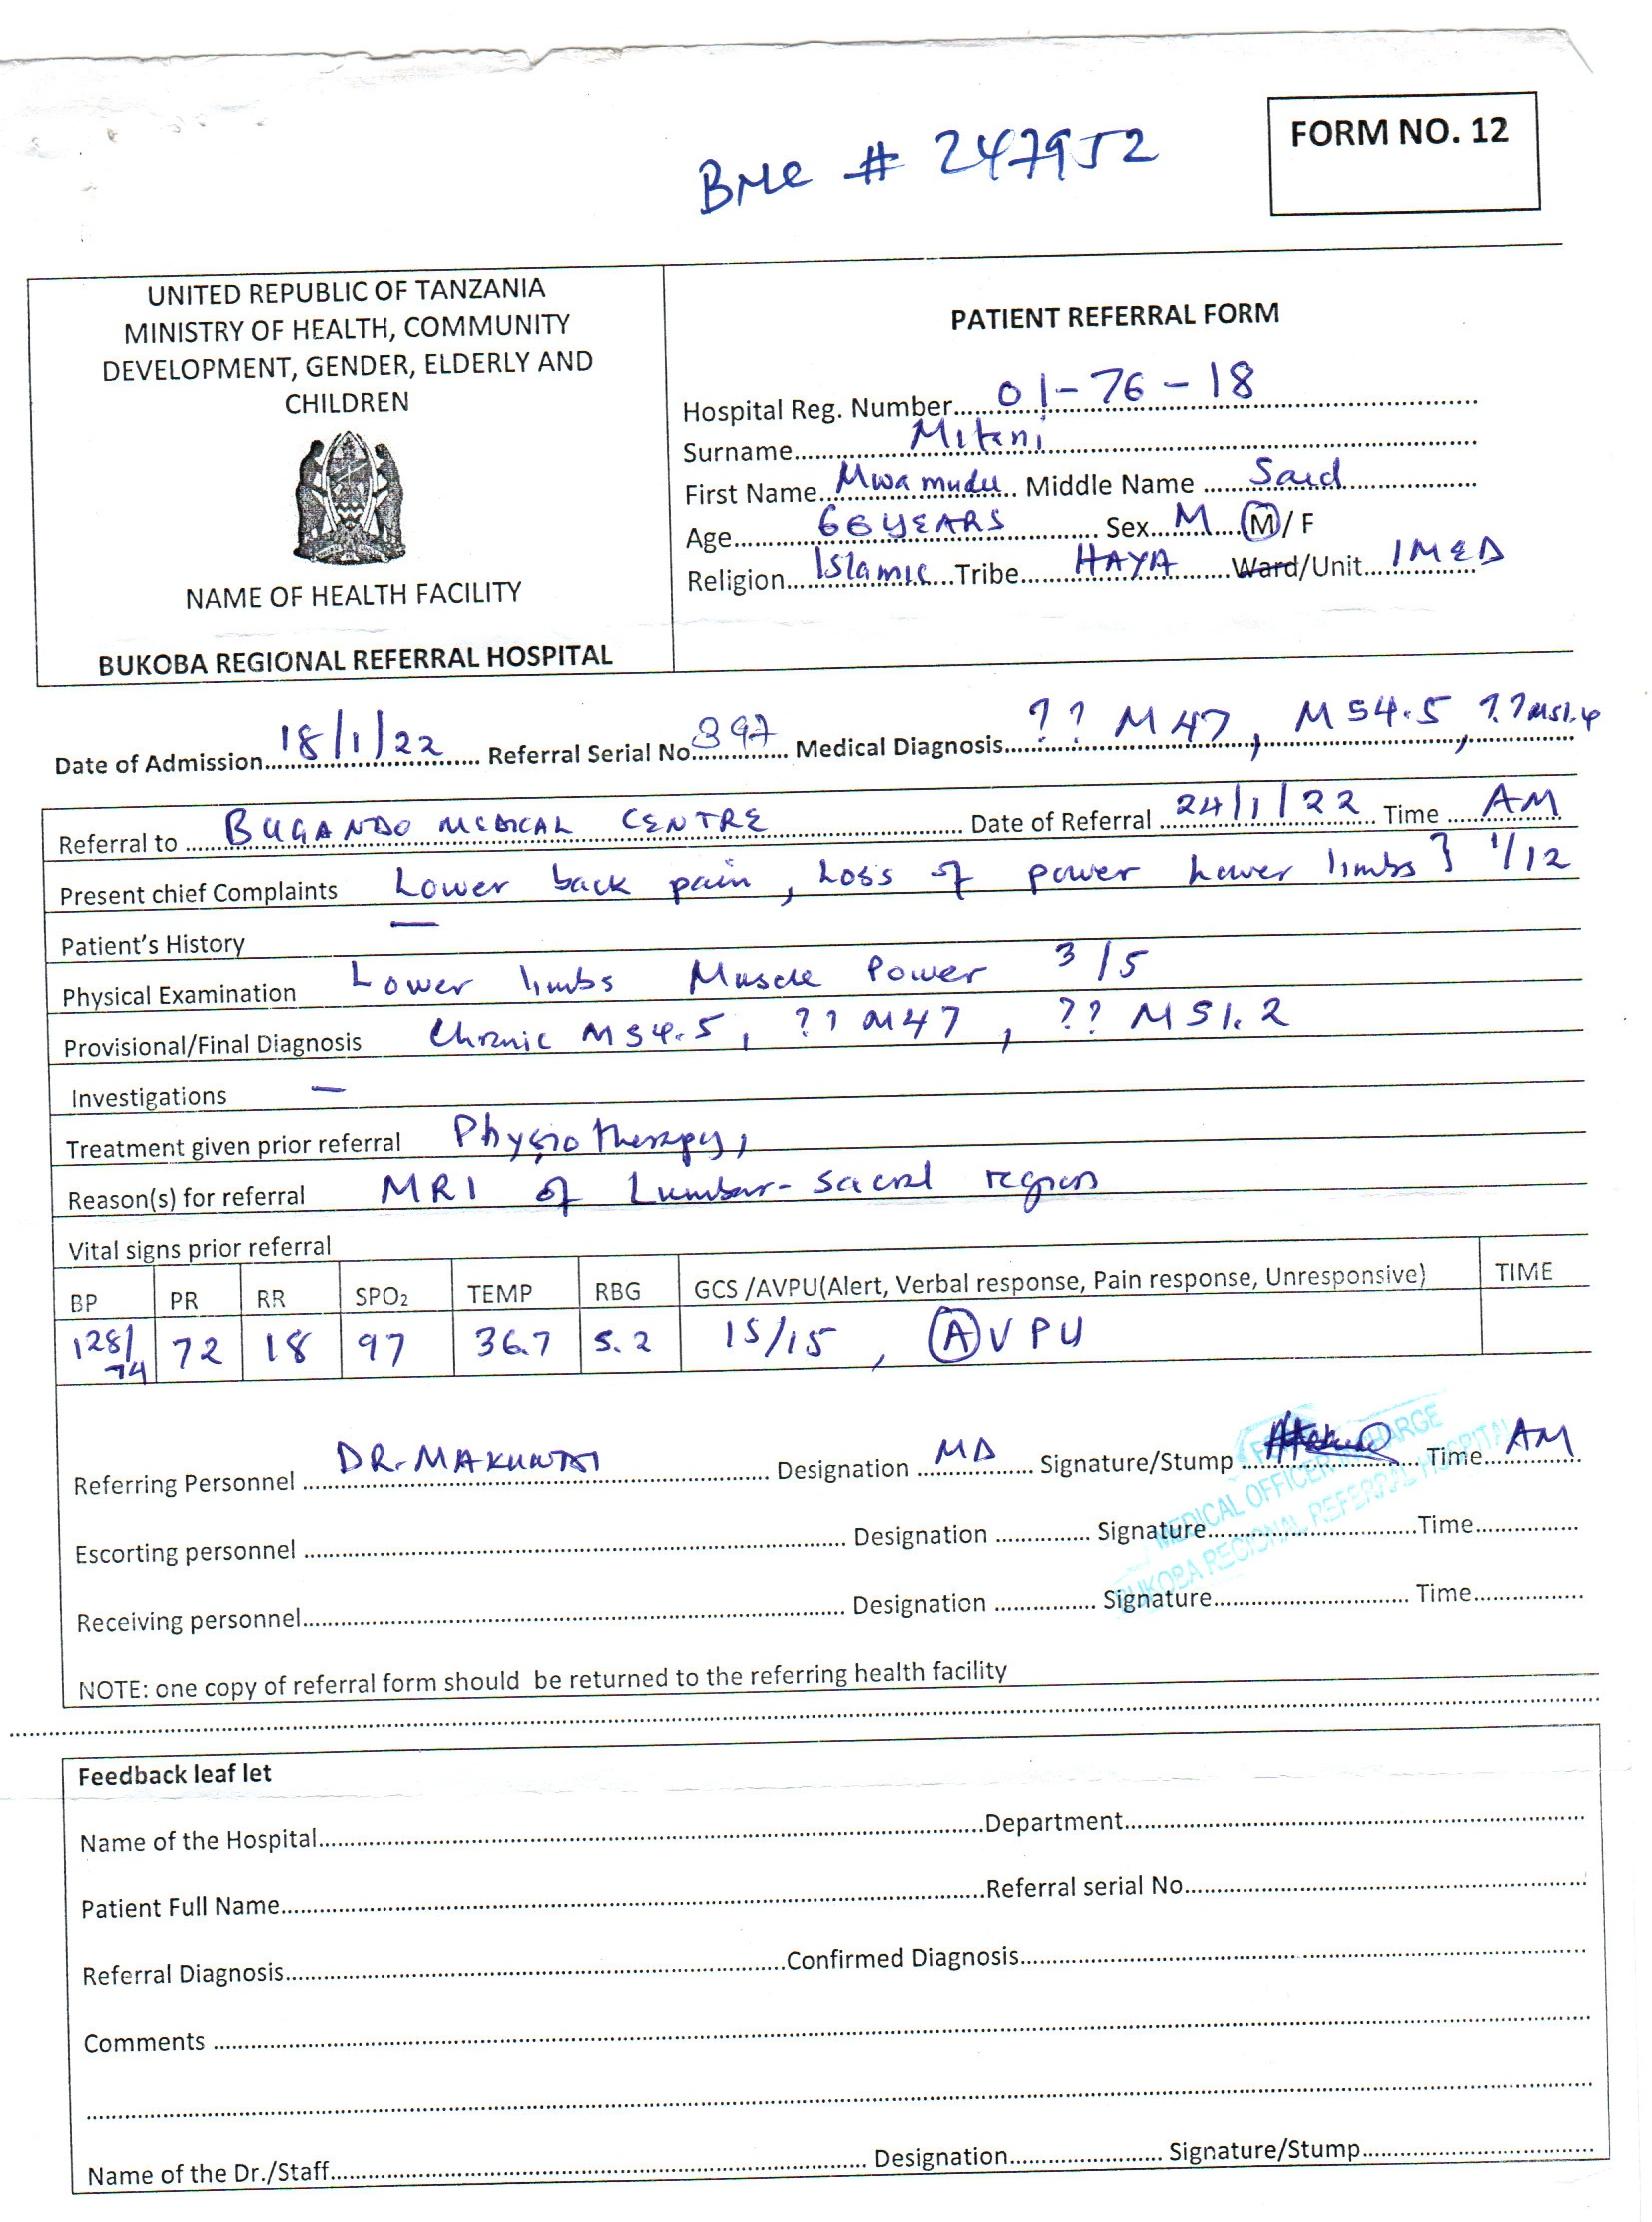 BMC # 247952
FORM NO. 12
UNITED REPUBLIC OF TANZANIA
MINISTRY OF HEALTH, COMMUNITY
DEVELOPMENT, GENDER, ELDERLY AND
CHILDREN
NAME OF HEALTH FACILITY
BUKOBA REGIONAL REFERRAL HOSPITAL
PATIENT REFERRAL FORM
Hospital Reg. Number 01-76-18
Surname
First Name Mwamudu Middle Name Said
Age 66 YEARS Sex M M / F
Religion Islamic Tribe HAYA Ward/Unit IMED
Date of Admission 18/1/22 Referral Serial No 397 Medical Diagnosis ?? M47, M54.5, ??
Referral to BUGANDO MEDICAL CENTRE Date of Referral 24/1/22 Time AM
Present chief Complaints Lower back pain, Loss of power Lower limbs } 1/12
Patient's History —
Physical Examination Lower limbs Muscle Power 3/5
Provisional/Final Diagnosis Chronic M54.5, ?? M47, ?? M51.2
Investigations —
Treatment given prior referral Physiotherapy,
Reason(s) for referral MRI of Lumbar-sacral region
Vital signs prior referral
BP PR RR SPO2 TEMP RBG GCS /AVPU(Alert, Verbal response, Pain response, Unresponsive) TIME
128/74 72 18 97 36.7 5.2 15/15, AVPU
Referring Personnel DR. Designation MD Signature/Stump Time AM
MEDICAL OFFICER INCHARGE
BUKOBA REGIONAL REFERRAL HOSPITAL
Escorting personnel Designation Signature Time
Receiving personnel Designation Signature Time
NOTE: one copy of referral form should be returned to the referring health facility
Feedback leaf let
Name of the Hospital Department
Patient Full Name Referral serial No
Referral Diagnosis Confirmed Diagnosis
Comments
Name of the Dr./Staff Designation Signature/Stump